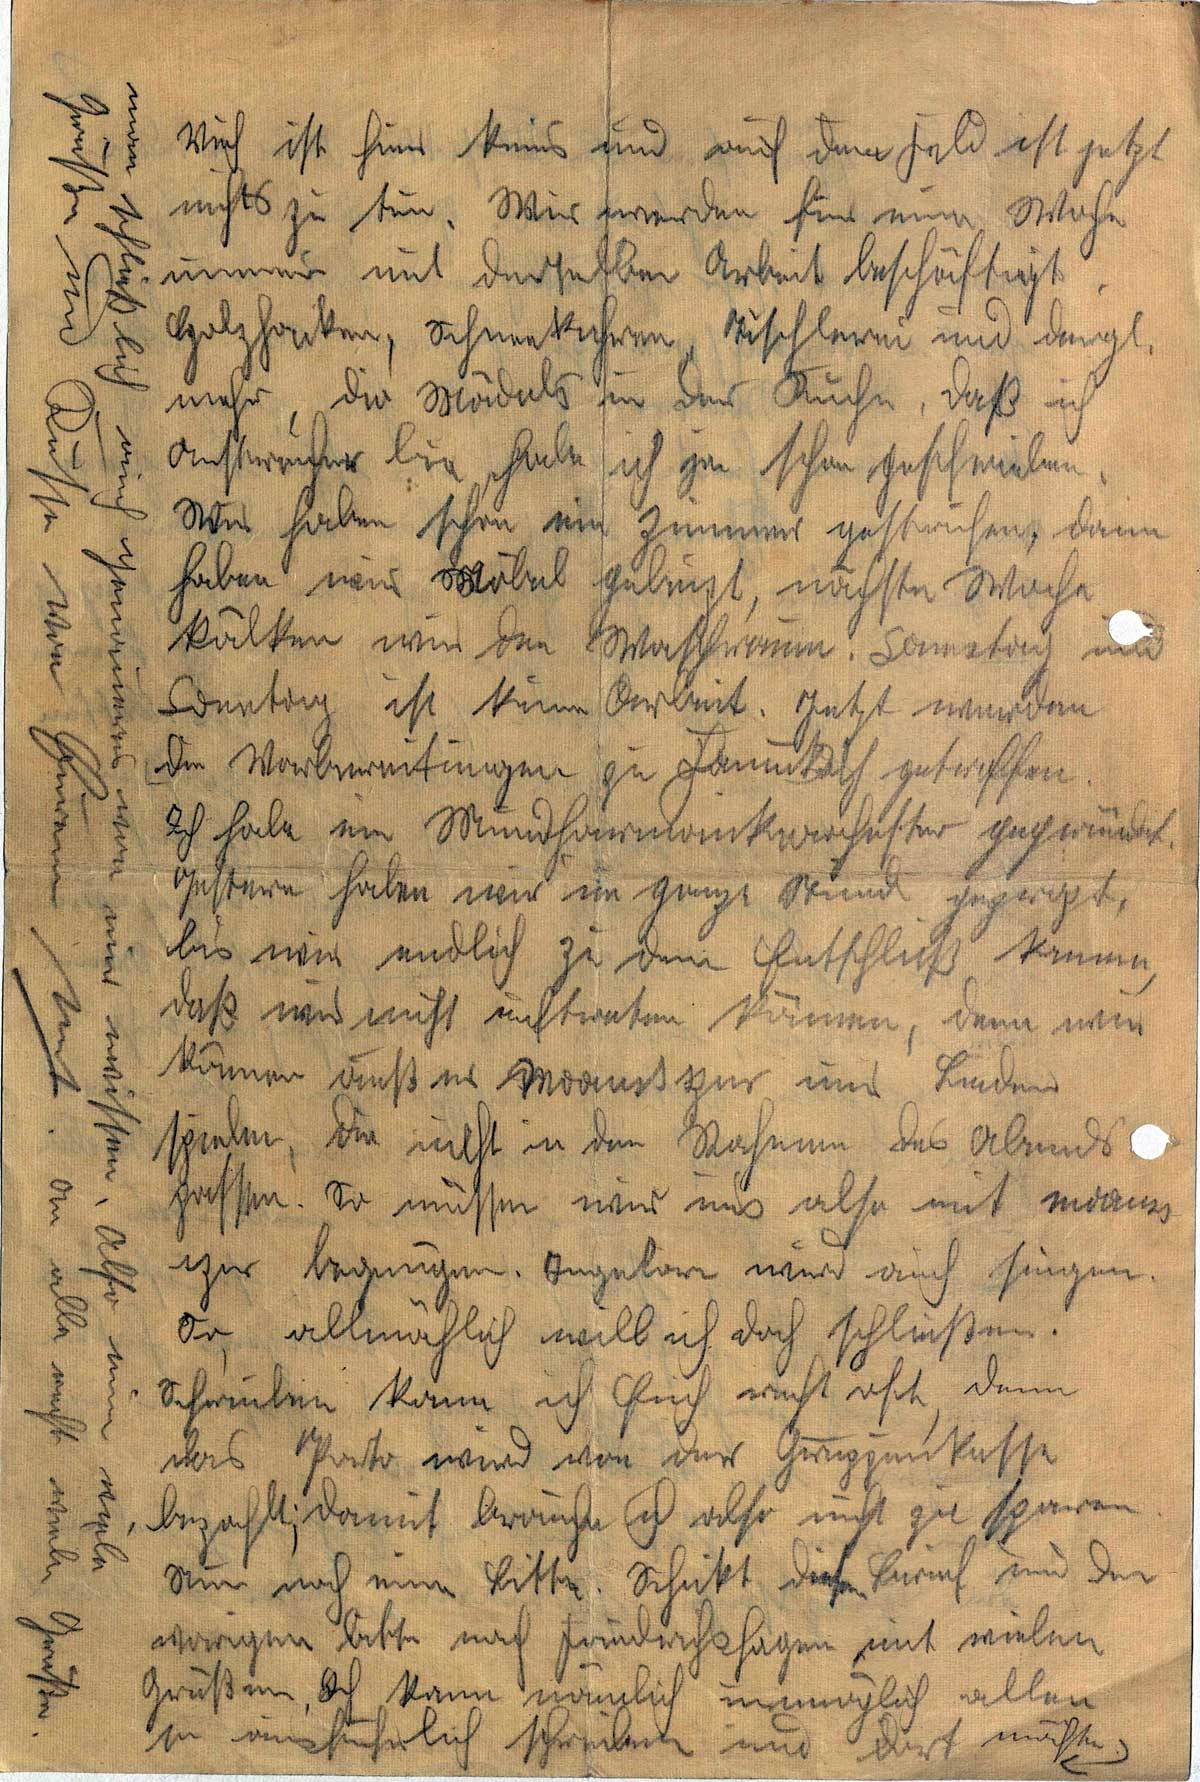 Vieh ist hier keins und auf dem Feld ist jetzt
nichts zu tun. Wir werden für eine Woche
immer mit derselben Arbeit beschäftigt,
Holzhacken, Schneekehren, Tischlerei und dergl.
mehr, die Mädels in der Küche, daß ich
Anstreicher bin, habe ich ja schon geschrieben.
Wir haben schon ein Zimmer gestrichen, dann
haben wir Möbel gebeizt, nächste Woche
kälken wir den Waschraum. Sonnatag und
Sonntag ist keine Arbeit. Jetzt werden
die Vorbereitungen zu getroffen.
Ich habe ein Mundharmonikaorchester gegründet.
Gestern haben wir ne ganze Stunde geprobt,
bis wir endlich zu dem Entschluß kamen,
daß wir nicht auftreten können, denn wir
können außer Moaus zur nur Lieder
spielen, die nicht in den Rahmen des Abends
passen. So müssen wir uns also mit moaus
zur begnügen. Angelore wird auch singen.
So, allmählich will ich doch schließen.
Schreiben kann ich Euch recht oft, denn
das Porto wird von der Gruppenkasse
bezahlt; damit brauche ich also nicht zu sparen.
Nun noch eine Bitte. Schikt diesen Brief und den
vorigen bitte nach Friedrichshagen mit vielen
Grüßen, Ich kann nämlich unmöglich allen
so ausführlich schreiben und dort möchte
man schließlich auch genaueres von mir wissen, Also nun viele
Grüße und Küsse von Eurem
An alle recht viele Grüße.